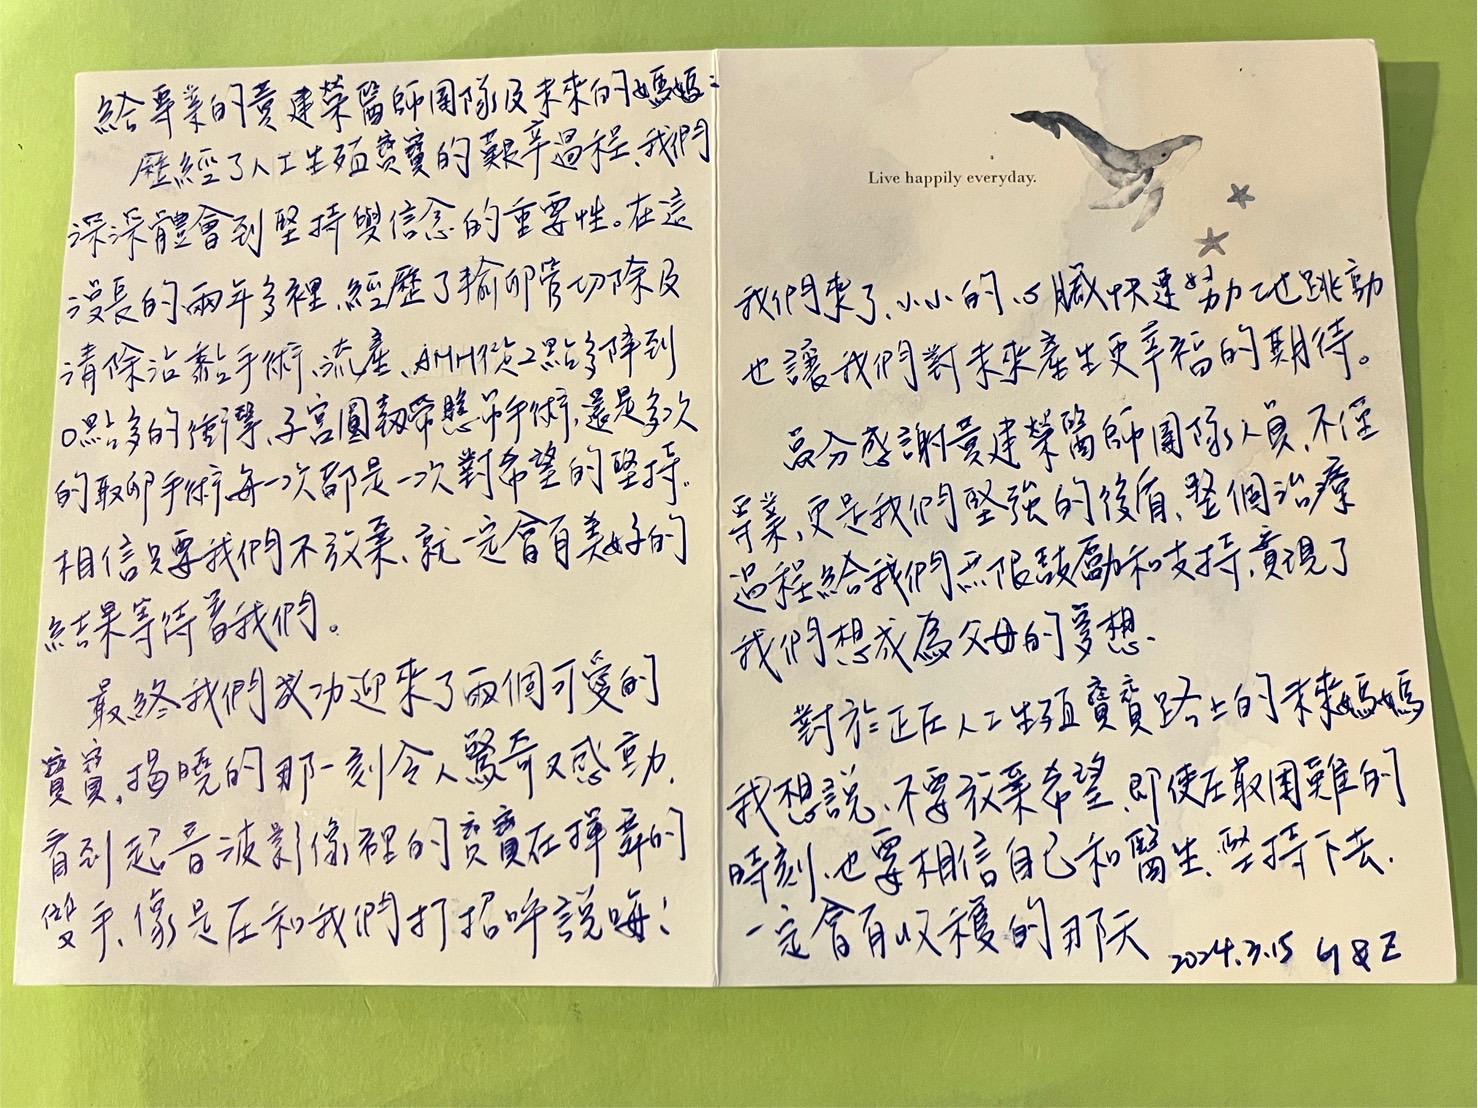 給專業的黃建榮醫師團隊及未來的媽媽：
歷經了人工生殖寶寶的艱辛過程、我們
深深體會到堅持與信念的重要性。在這
漫長的兩年多裡、經歷了輸卵管切除及
清除沾黏手術、流產、AMH從2點多降到
0點多的衝擊、子宮圓韌帶懸吊手術、還是多次
的取卵手術、每一次都是一次對希望的堅持。
相信只要我們不放棄、就一定會有美好的
結果等待著我們。
最終我們成功迎來了兩個可愛的
寶寶，揭曉的那一刻令人驚奇又感動、
看到超音波影像裡的寶寶在揮舞的
雙手、像是在和我們打招呼說嗨！
Live happily everyday.
我們來了、小小的心臟快速努力地跳動
也讓我們對未來產生更幸福的期待。
萬分感謝黃建榮醫師團隊人員、不僅
專業、更是我們堅強的後盾、整個治療
過程給我們無限鼓勵和支持、實現了
我們想成為父母的夢想、
對於正在人工生殖寶寶路上的未來媽媽
我想說、不要放棄希望、即使在最困難的
時刻、也要相信自己和醫生、堅持下去、
一定會有收穫的那天
2024.3.15 G & E